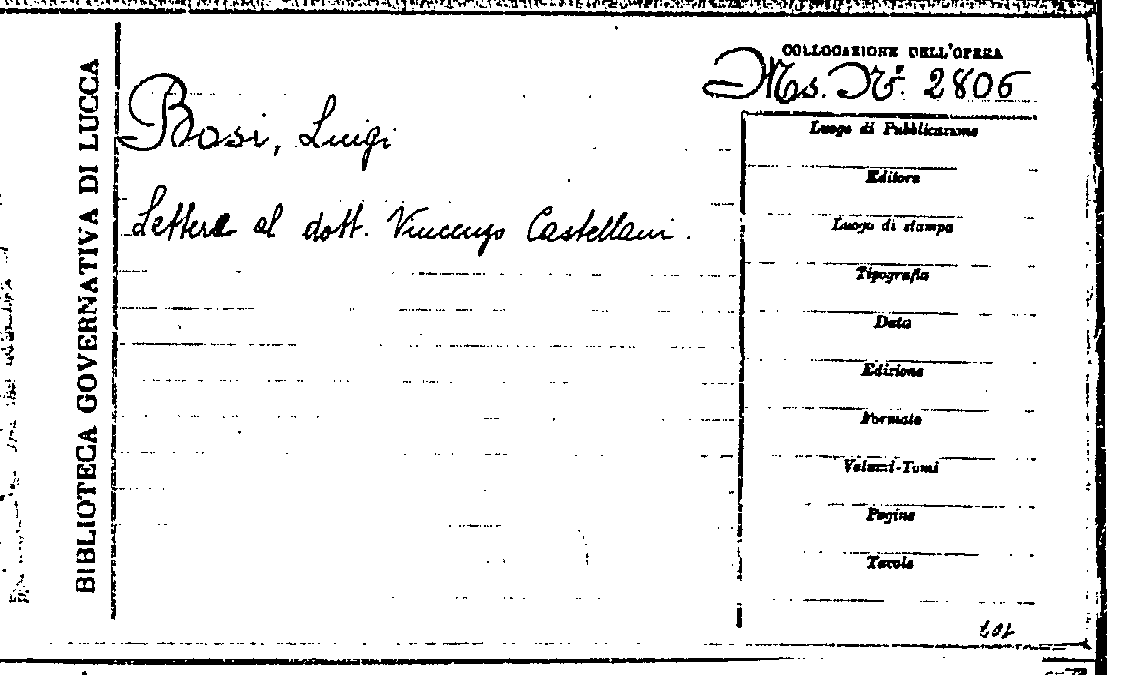 BIBLIOTECA GOVERNATIVA DI LUCCA
COLLOCAZIONE DELL'OPERA
Ms. N.º 2806
Bosi, Luigi
Lettere al dott. Vincenzo Castellani.
Luogo di Pubblicazione
Editore
Luogo di stampa
Tipografia
Data
Edizione
Formato
Volumi-Tomi
Pagine
Tavole